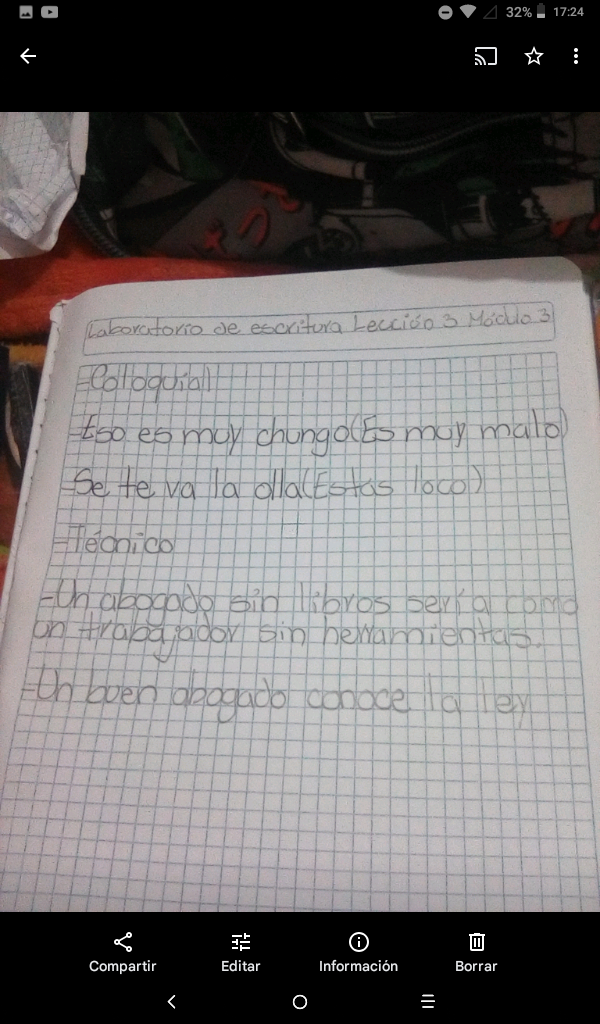 32% 17:24
Laboratorio de escritura Lección 3 Módulo 3
-Colloquial
-Eso es muy chungo(Es muy malo)
-Se te va la olla(Estas loco)
-Técnico
-Un abogado sin libros sería como
un trabajador sin herramientas.
-Un buen abogado conoce la ley
Compartir Editar Información Borrar